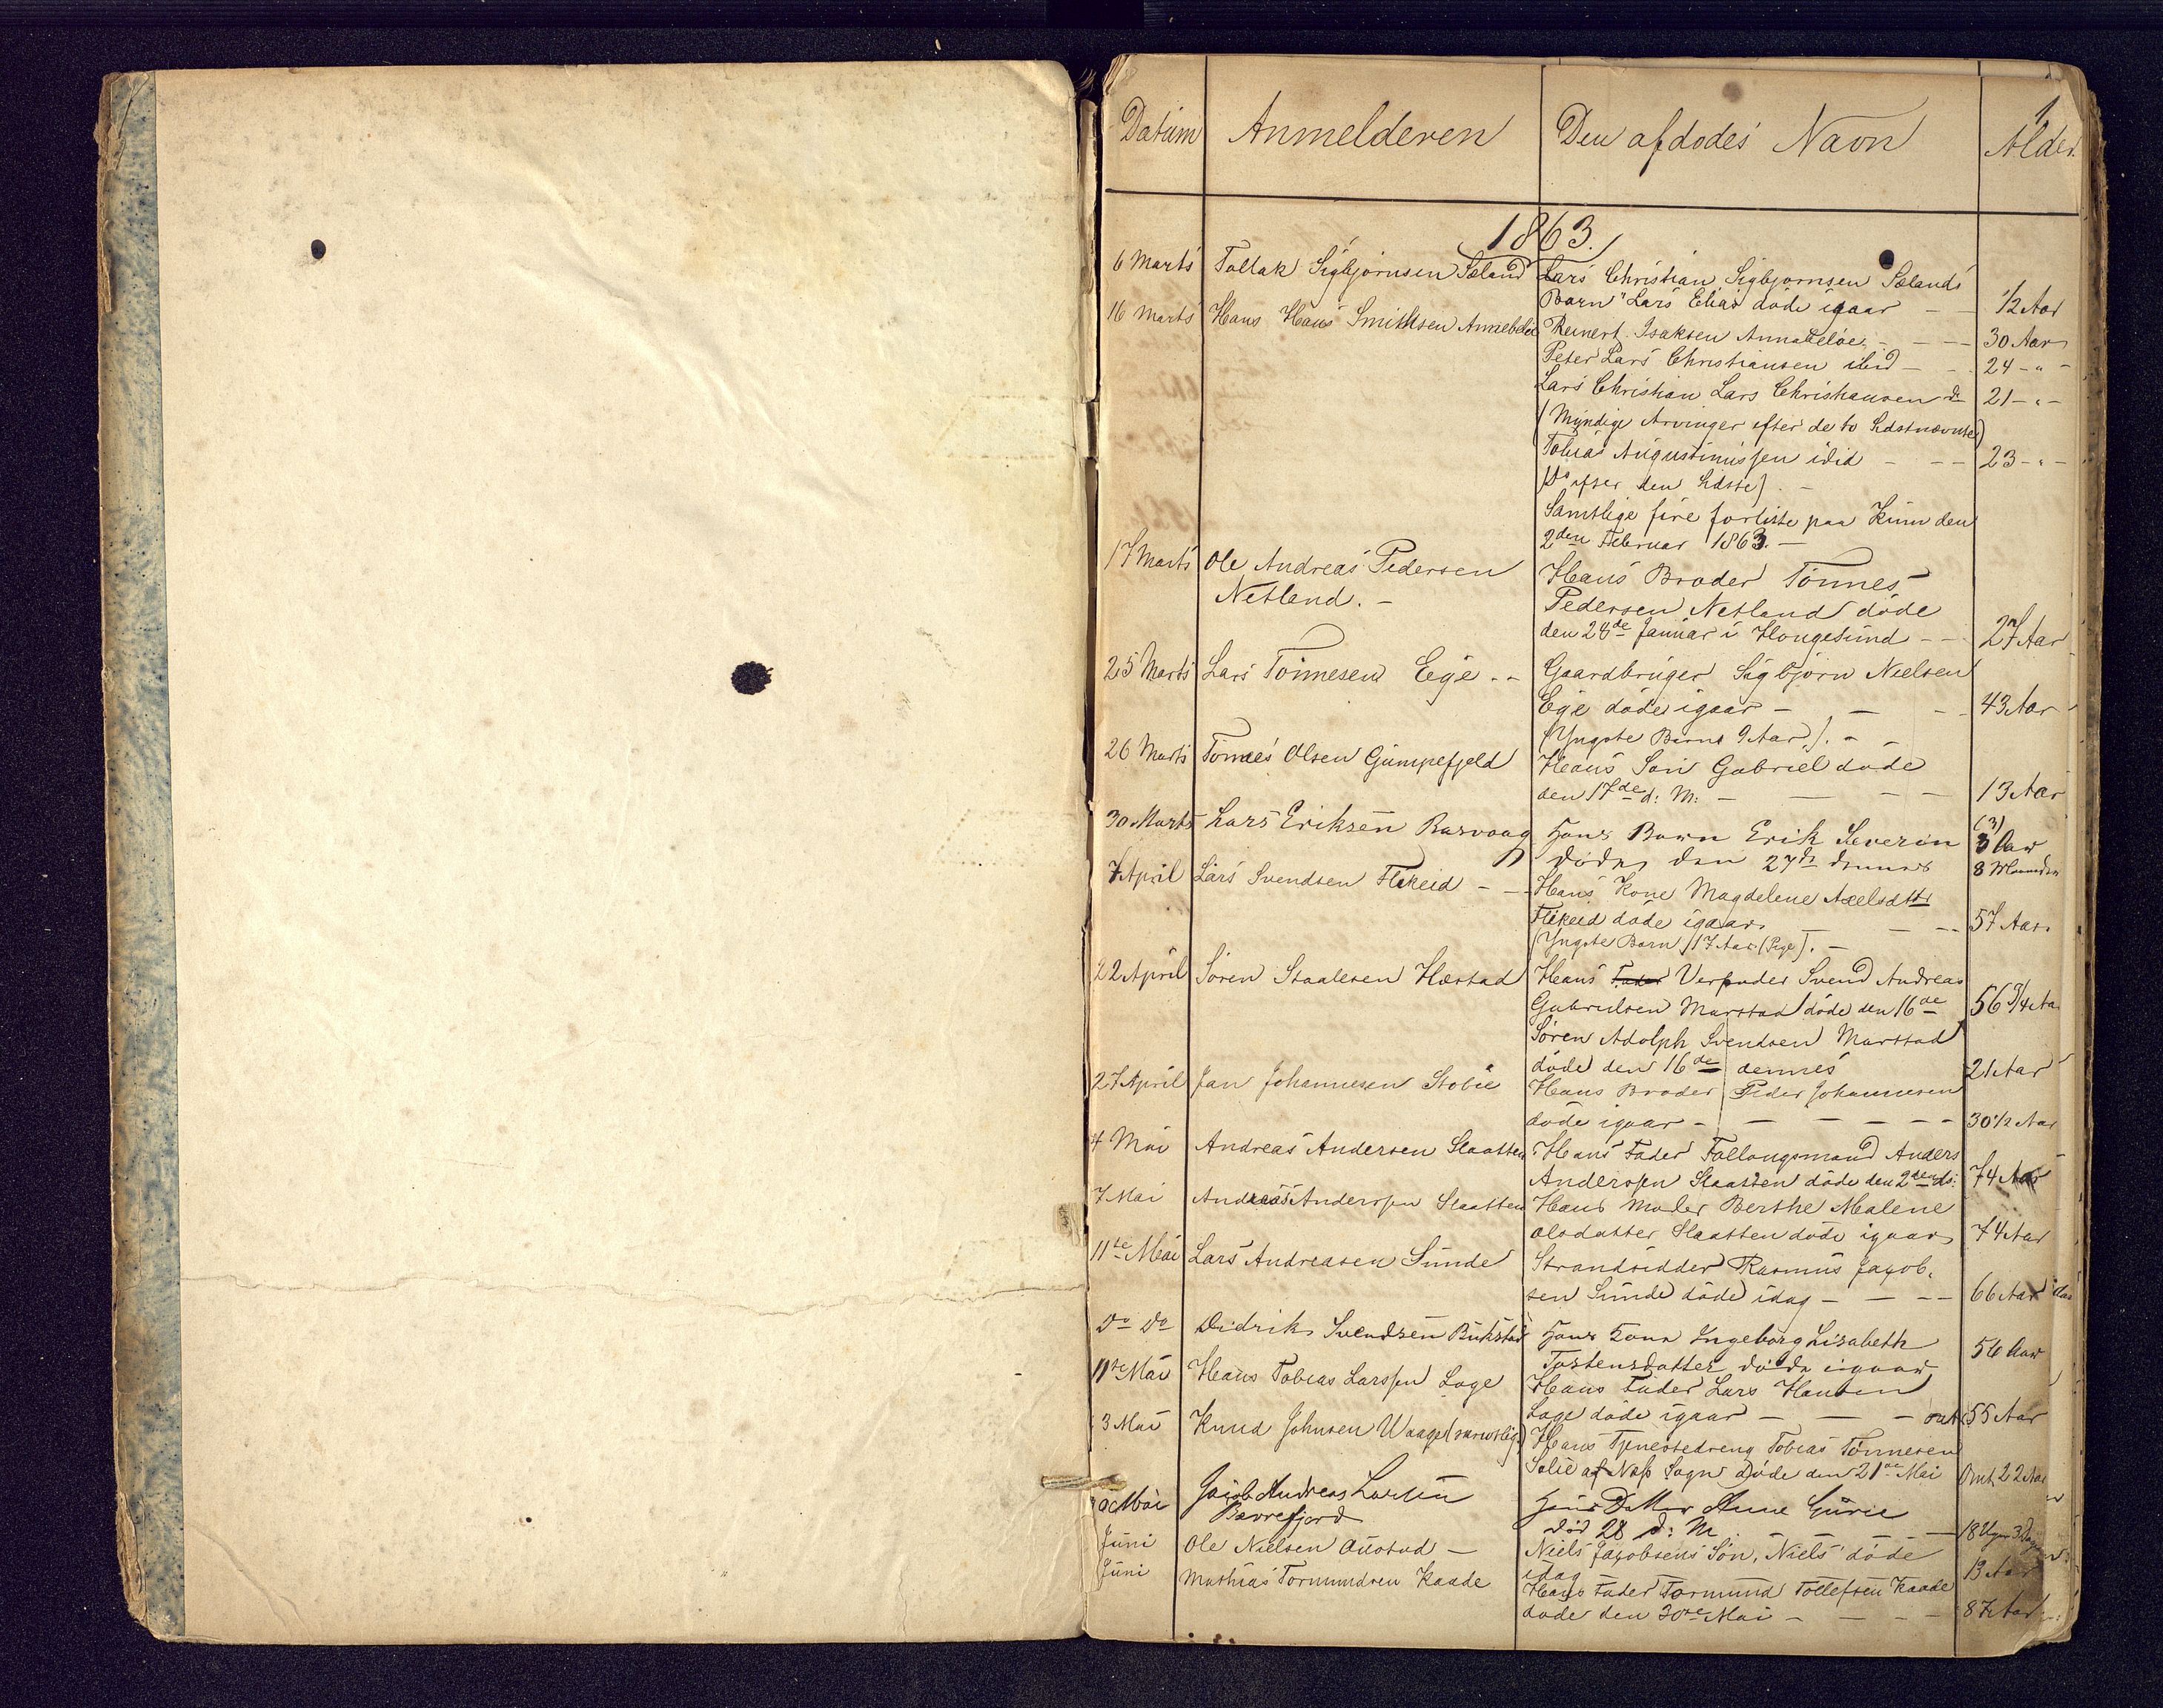 1
Datum Anmelderen Den afdødes Navn Alder
1863.
6 Marts Tallak Sigbjørnsen Sæland Lars Christian Sigbjørnsen Sælands
Barn "Lars Elias døde igaar - - 1/2 Aar
16 Marts Hans Hans Smithsen Reinert Isaksen Annabeløe - - 30 Aar
Peter Lars Christiansen ibid - - 24 - " -
Lars Christian Lars Christiansen do 21 - " -
(Myndige Arvinger efter de to sidstnævnte)
Tobias Augustinussen ibid - - - 23 - " -
(Do efter den sidste). -
Samtlige fire forliste paa Kinn den
2den Februar 1863. -
17 Marts Ole Andreas Pedersen Hans Broder Tønnes
Netland. - Pedersen Netland døde
den 28de Januar i Hougesund - - 27 Aar
25 Marts Lars Tønnesen Ege - - Gaardbruger Sigbjørn Nielsen
Ege døde igaar - - - 43 Aar
(Yngste Barn 9 Aar). - -
26 Marts Tønnes Olsen Gumpefjeld Hans Søn Gabriel døde
den 17de d: M: - - - - 13 Aar
30 Marts Lars Eriksen Rasvaag Hans Barn Erik Severin (3) 3 Aar
døde den 27de dennes 8 Maaneder
7 April Lars Svendsen Flikeid - - Hans Kone Magdelene Axelsdttr
Flikeid døde igaar. - - - 57 Aar.
(Yngste Barn 17 Aar (Pige). -
22 April Søren Staalesen Hæstad Hans Fader Verfader Svend Andreas
Gabrielsen Marstad døde den 16de 56 3/4 Aa
Søren Adolph Svendsen Marstad
døde den 16de dennes 21 Aar
27 April Jan Johannesen Stobie Hans Broder Peder Johannesen
døde igaar - - - - - - 30 1/2 Aar
4 Mai Andreas Andersen Slaatten Hans Fader Follougsmand Anders
Anderssen Slaatten døde den 2den ds: 74 Aar
7 Mai Andreas Anderssen Slaatten Hans Moder Berthe Malene
Olsdatter Slaatten døde igaar 74 Aar
11te Mai Lars Andreasen Sunde Strandsidder Rasmus Jacob-
sen Sunde døde idag - - - - 66 Aar
Do Do Didrik Svendsen Bukstad Hans Kone Ingeborg Lisabeth
Tostensdatter døde igaar 56 Aar
11te Mai Hans Tobias Larssen Loge Hans Fader Lars Hansen
Loge døde igaar - - - omt 55 Aar
3 Mai Knud Johnsen Waage (skriftlig) Hans Tjenestedreng Tobias Tønnesen
Solie af Næs Sogn Døde den 21de Mai Omt. 22 Aar
Mai Jacob Andreas Larsen Hans Datter Anne Gurie
Bærefjord død 28 d: M. - 18 Uger 3 Dage
Juni Ole Nielsen Austad - Niels Jacobsens Søn, Niels døde
idag - 13 Aar
Juni Mathias Tormundsen Kaade Hans Fader Tormund Tollefsen Kaade
døde den 30te Mai - - - - 87 Aar